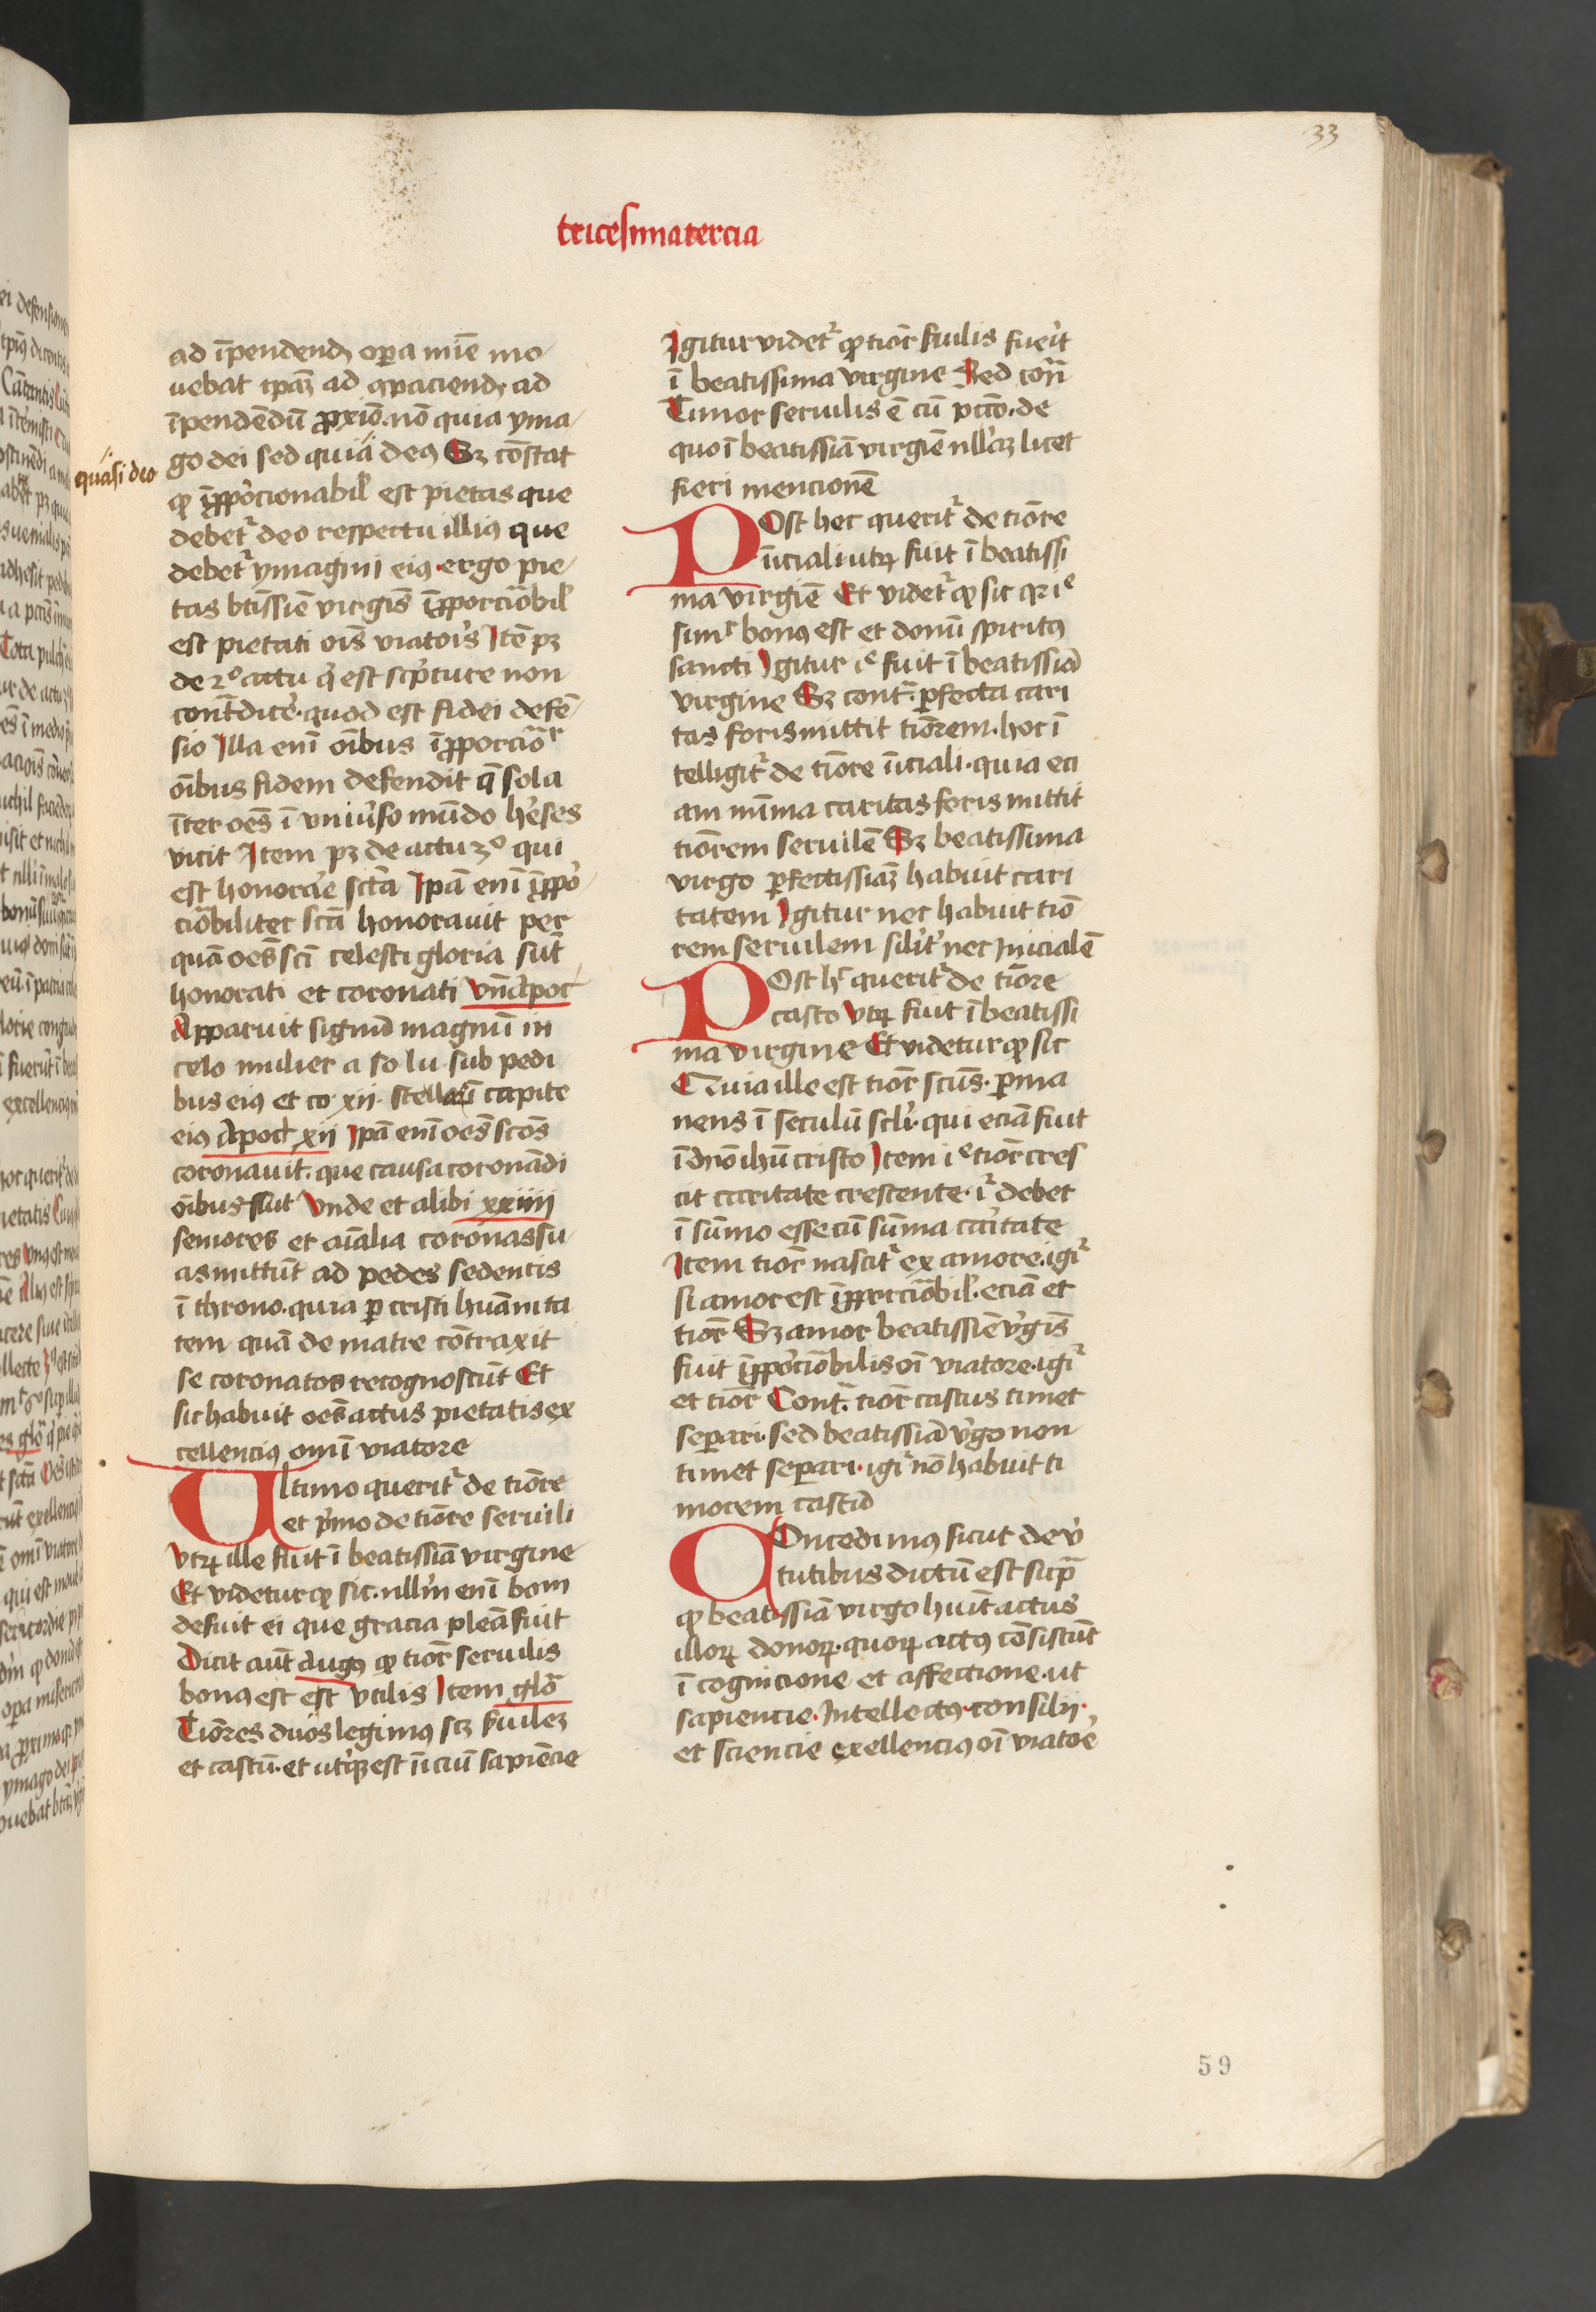 33
tricesimatercia
ad īpendendꝫ oꝑa mīe mo
uebat ipāꝫ ad ꝯpaciendꝫ ad
īpendēdū ꝓxīo. nō quia yma
go dei sed quia deꝰ Sꝫ cōstat
quasi deo
ꝙ īꝓporcionabil̛ est pietas que
debet᷑ deo respectu illiꝰ que
debet᷑ ymagini eiꝰ. ergo pie
tas btissīe virgīs īꝓporcōabil̛
est pietati oīs viatoris Itē pꝫ
de 2º actu q̇ est scpture non
contᷓdicē. quod est fidei defē
sio Illa enī oībus īꝓporcōr
oībus fidem defendit q̄ sola
īter oēs ī vniuso mūdo heses
vicit Item pꝫ de actu 3º qui
est honorare sctā Ipā enī īꝓpo
ciōbiliter sctā honorauit per
quā oēs scī celesti gloria sūt
honorati et coronati vn̄ Apoc
Apparuit signū magnū in
celo mulier a so lu sub pedi
bus eiꝰ et co xii stellaꝝ ī capite
eiꝰ Apoc xii Ipā enī oēs scōs
coronauit. que causa coronādi
oībus fuit Vnde et alibi xxiiii
seniores et aīalia coronas su
as mittūt ad pedes sedentis
ī throno. quia ꝑ cristi huāmita
tem quā de matre cōtraxit
se coronatos recognoscūt Et
sic habuit oēs actus pietatis ex
cellenciꝰ omī viatore
Ultimo querit᷑ de tiōre
et pͥmo de tiōre seruili
vtꝝ ille fuit ī beatissiā virgine
Et videtur ꝙ sic. nllm̄ enī bom
defuit ei que gracia pleā fuit
Dicit aūt Augꝰ ꝙ tiōr seruilis
bonꝰ est est vtilis Item glō
Tiōres duos legimꝰ scꝫ suileꝫ
et castū. et utqꝫ est īiciū sapiēcie
Igitur videt᷑ ꝙ tiōr suilis fueit
ī beatissima virgine Sed cōn̄
Timor seruilis ē cū pctō. de
quo ī beatissiā virgīe nllaꝫ licet
fieri mencionē
Post hec querit᷑ de tiōre
īiciali utꝝ fuit ī beatissi
ma virgīe Et videt᷑ ꝙ sic qꝛ iͤ
simͬ bonꝰ est et donū spiritꝰ
sancti Igitur iͤ fuit ī beatissiā
virgine Sꝫ contᷓ. ꝑfecta cari
tas foris mittit tiōrem. hoc ī
telligit᷑ de tiōre īiciali. quia eci
am mīma caritas foris mittit
tiōrem seruilē Sꝫ beatissima
virgo ꝑfectissiāꝫ habuit cari
tatem Igitur nec habuit tiō
rem seruilem silit̛ nec inicialē
Post hͨ querit᷑ de tiōre
casto vtꝝ fuit ī beatissi
ma virgine Et videtur ꝙ sic
Quia ille est tiōr scūs. ꝑma
nens ī seculū scli̛. qui eciā fuit
ī dnō ihū cristo Item iͤ tiōr cres
cit caritate crescente. i᷑ debet
ī sūmo esse cū sūma caritate
Item tiōr nascit᷑ ex amore. igi᷑
si amor est īꝓporciōbil̛. eciā et
tiōr Sꝫ amor beatissīe vgīs
fuit īꝓpociōbilis oī viatore. igi᷑
et tiōr Contᷓ. tiōr castus timet
seꝑari. sed beatissiā vgo non
timet seꝑari. igi᷑ nō habuit ti
morem castū
Concedimꝰ sicut de v̛
tutibus dictū est supᷓ
ꝙ beatissiā virgo huīt actus
illoꝝ donoꝝ. quoꝝ actꝰ cōsistūt
ī cognicione et affectione. ut
sapiencie. Intellectꝰ. consilii.
et sciencie exellenciꝰ oī viatoe
59